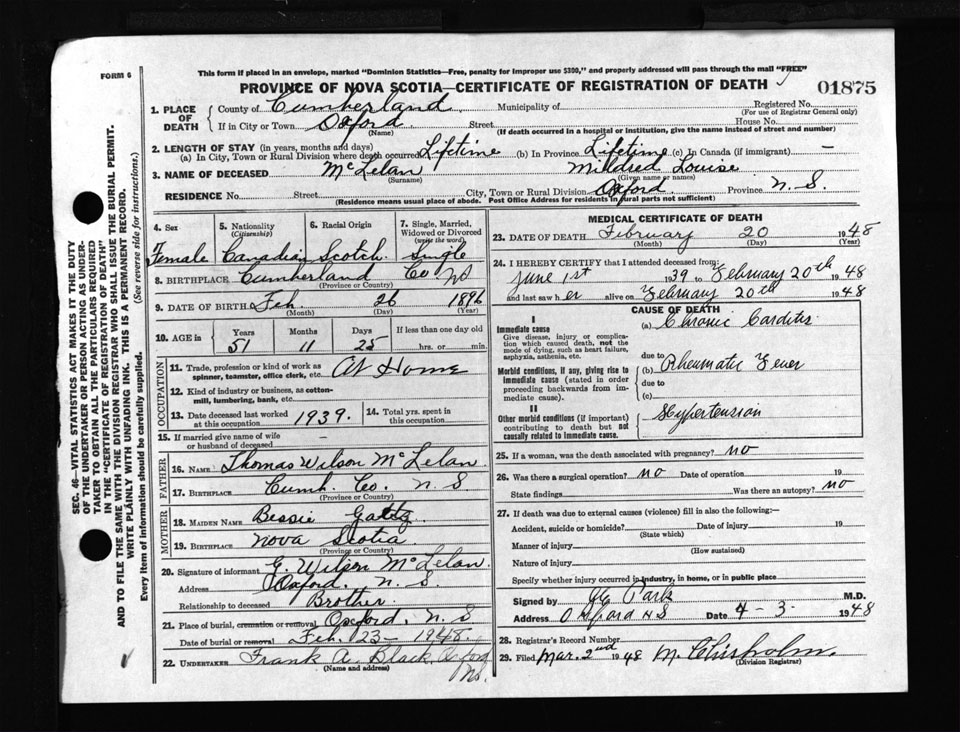 This form if placed in an envelope, marked "Dominion Statistics—Free, penalty for improper use $300," and properly addressed will pass through the mail "FREE"
FORM 6
PROVINCE OF NOVA SCOTIA—CERTIFICATE OF REGISTRATION OF DEATH
01875
1. PLACE OF DEATH { County of Cumberland Municipality of Registered No.
(For use of Registrar General only)
If in City or Town Oxford Street House No.
(Name) (If death occurred in a hospital or institution, give the name instead of street and number)
2. LENGTH OF STAY (in years, months and days)
(a) In City, Town or Rural Division where death occurred Lifetime (b) In Province Lifetime (c) In Canada (if immigrant) —
3. NAME OF DECEASED McLelan Mildred Louise
(Surname) (Given name or names)
RESIDENCE No. Street City, Town or Rural Division Oxford Province N.S.
(Residence means usual place of abode. Post Office Address for residents in rural parts not sufficient)
4. Sex 5. Nationality (Citizenship) 6. Racial Origin 7. Single, Married, Widowed or Divorced (write the word)
Female Canadian Scotch Single
8. BIRTHPLACE Cumberland Co. NS
(Province or Country)
9. DATE OF BIRTH Feb. 26 1896
(Month) (Day) (Year)
10. AGE in { Years Months Days If less than one day old
51 11 25 hrs. or min.
OCCUPATION
11. Trade, profession or kind of work as spinner, teamster, office clerk, etc. At Home
12. Kind of industry or business, as cotton-mill, lumbering, bank, etc.
13. Date deceased last worked at this occupation 1939. 14. Total yrs. spent in this occupation
15. If married give name of wife or husband of deceased —
FATHER
16. NAME Thomas Wilson McLelan
17. BIRTHPLACE Cumb. Co. N.S
(Province or Country)
MOTHER
18. MAIDEN NAME Bessie
19. BIRTHPLACE Nova Scotia
(Province or Country)
20. Signature of informant G. Wilson McLelan
Address Oxford, N.S.
Relationship to deceased Brother
21. Place of burial, cremation or removal Oxford, N.S
Date of burial or removal Feb. 23 - 1948.
22. UNDERTAKER Frank A. Black, Oxford NS.
(Name and address)
MEDICAL CERTIFICATE OF DEATH
23. DATE OF DEATH February 20 1948
(Month) (Day) (Year)
24. I HEREBY CERTIFY that I attended deceased from:
June 1st 1939 to February 20th 1948
and last saw her alive on February 20th 1948
CAUSE OF DEATH
I
Immediate cause
Give disease, injury or complication which caused death, not the mode of dying, such as heart failure, asphyxia, asthenia, etc.
(a) Chronic Carditis
due to
Morbid conditions, if any, giving rise to immediate cause (stated in order proceeding backwards from immediate cause).
(b) Rheumatic Fever
due to
(c)
II
Other morbid conditions (if important) contributing to death but not causally related to immediate cause.
Hypertension
25. If a woman, was the death associated with pregnancy? no
26. Was there a surgical operation? no Date of operation 19
State findings Was there an autopsy? no
27. If death was due to external causes (violence) fill in also the following:—
Accident, suicide or homicide? Date of injury 19
(State which)
Manner of injury
(How sustained)
Nature of injury
Specify whether injury occurred in industry, in home, or in public place
Signed by Park M.D.
Address Oxford NS Date 4-3- 1948
28. Registrar's Record Number
29. Filed Mar. 2nd 1948 M. Chisholm.
(Division Registrar)
SEC. 46—VITAL STATISTICS ACT MAKES IT THE DUTY
OF THE UNDERTAKER OR PERSON ACTING AS UNDER-
TAKER TO OBTAIN ALL THE PARTICULARS REQUIRED
IN THE "CERTIFICATE OF REGISTRATION OF DEATH"
AND TO FILE THE SAME WITH THE DIVISION REGISTRAR WHO SHALL ISSUE THE BURIAL PERMIT.
WRITE PLAINLY WITH UNFADING INK. THIS IS A PERMANENT RECORD.
Every item of information should be carefully supplied. (See reverse side for instructions.)